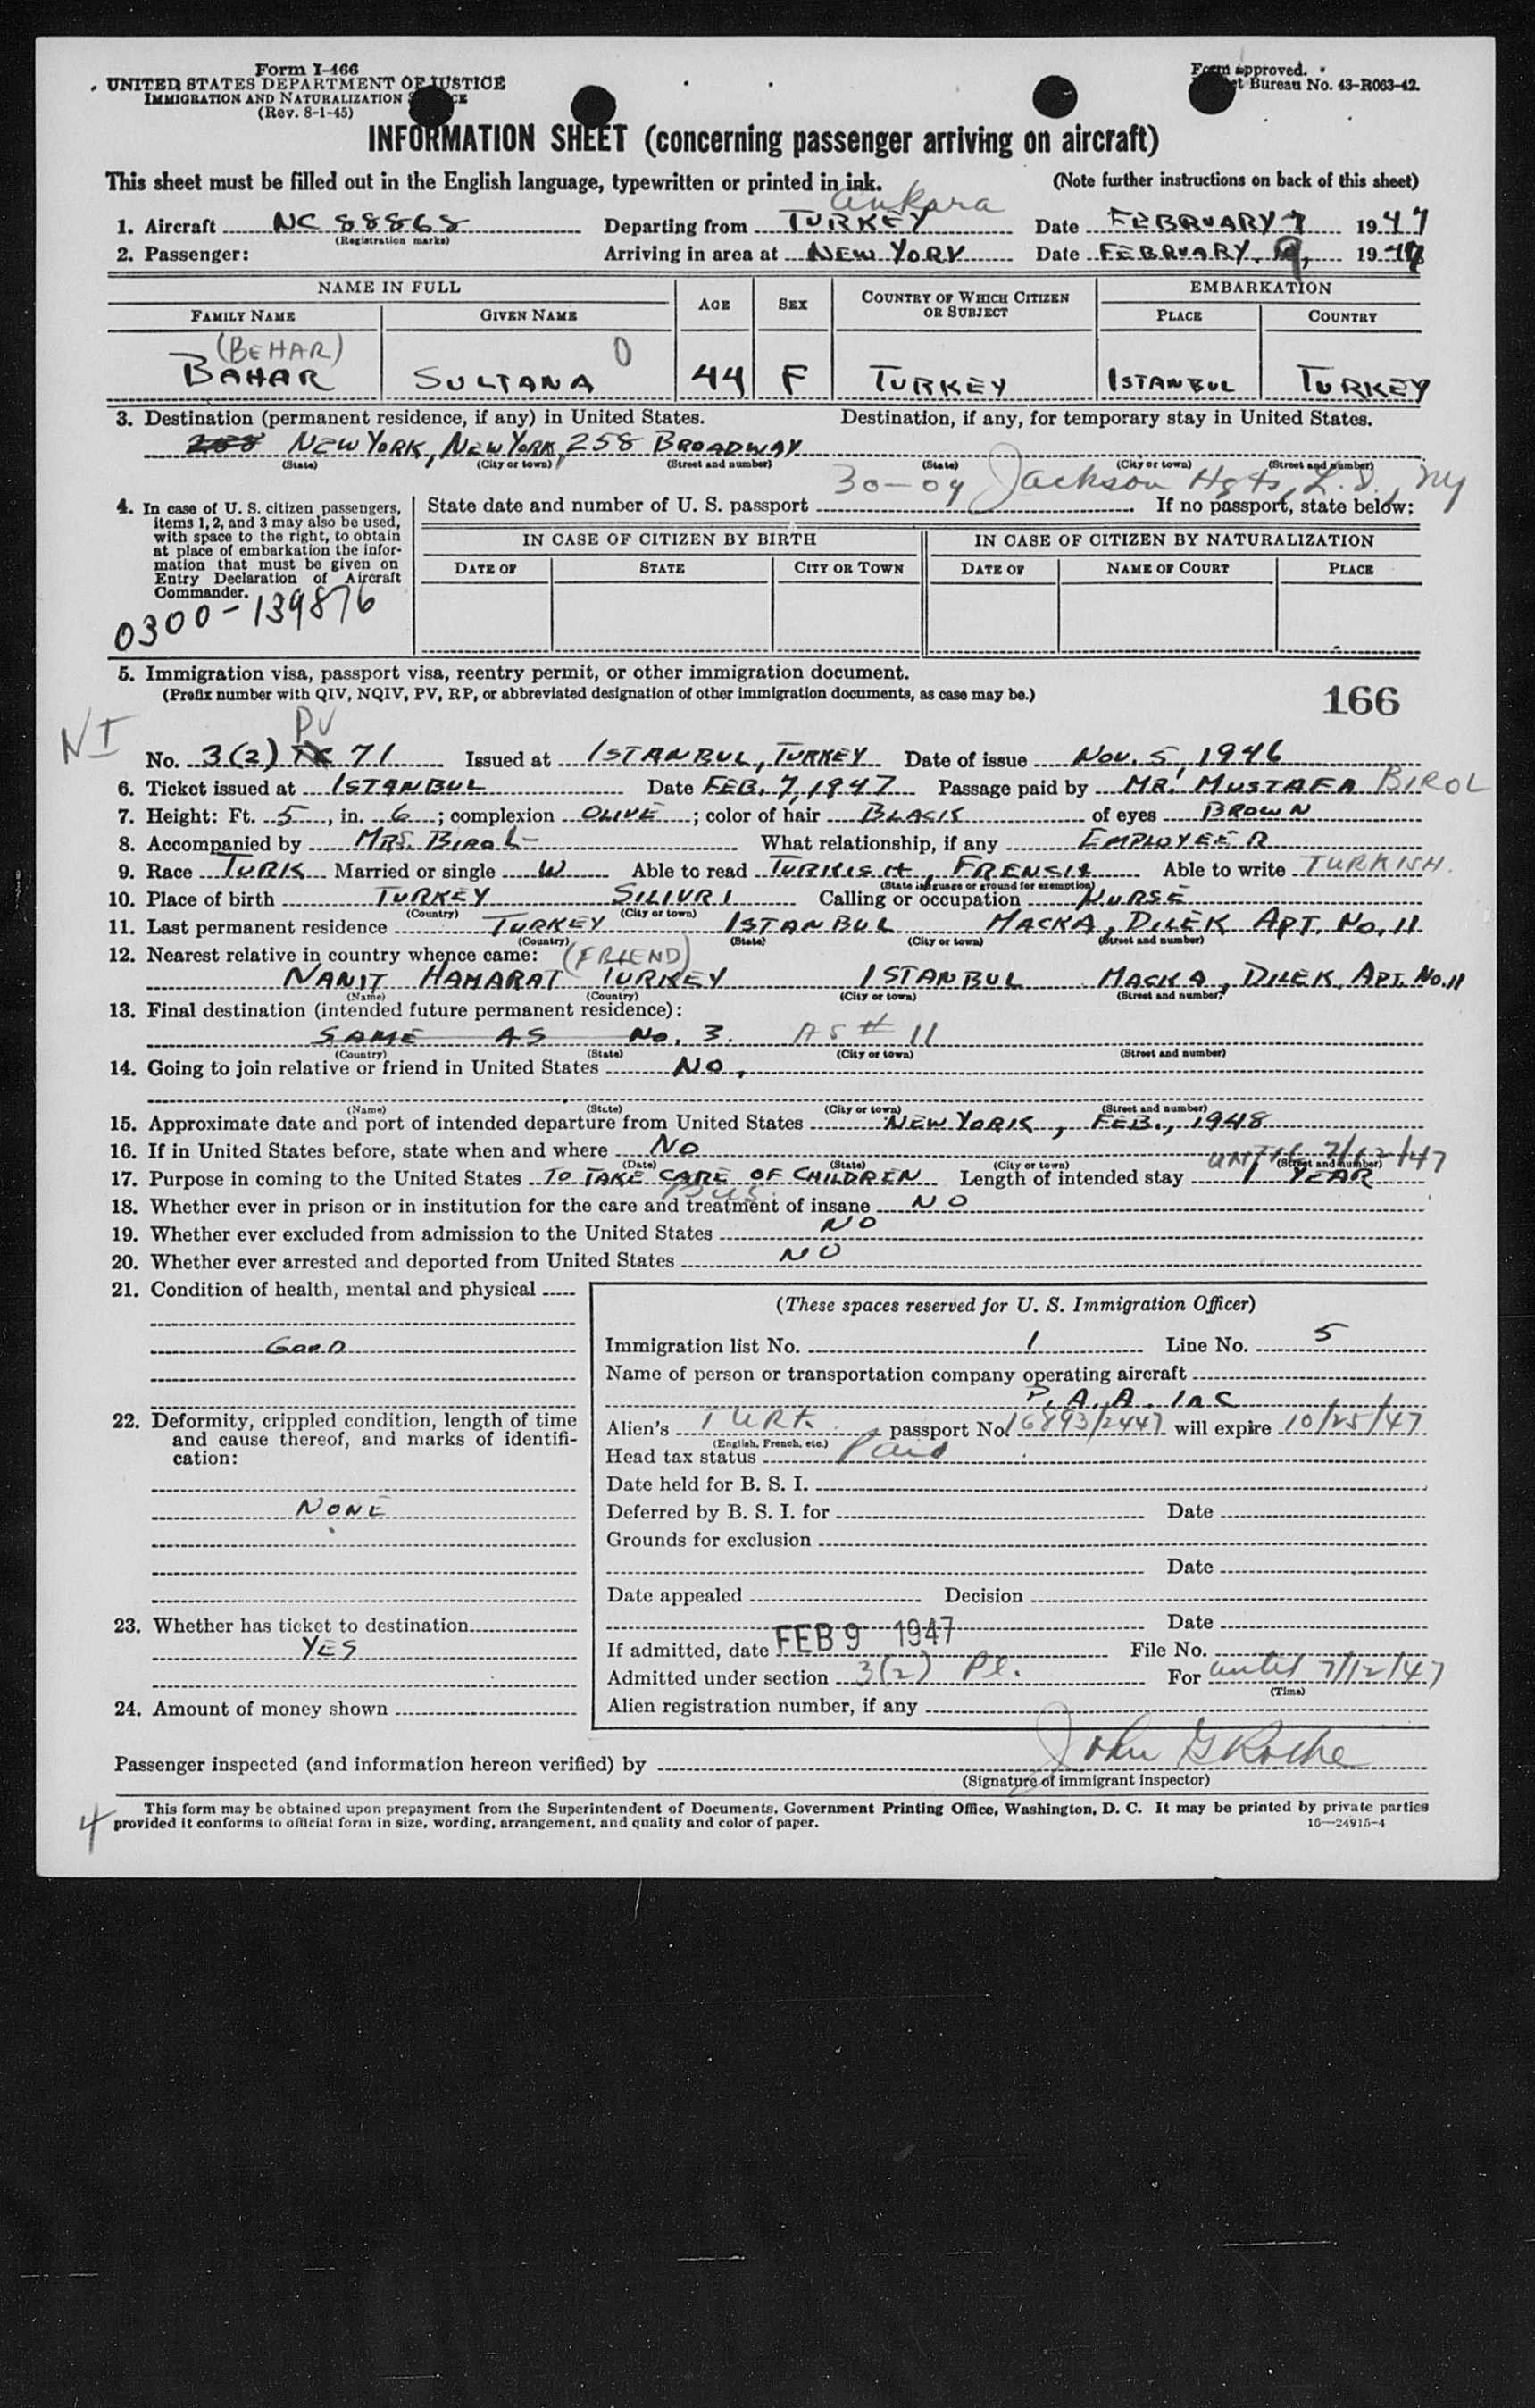 Form I-466
UNITED STATES DEPARTMENT OF JUSTICE
IMMIGRATION AND NATURALIZATION
(Rev. 8-1-45)
Form approved.
Bureau No. 43-R063-42.
INFORMATION SHEET (concerning passenger arriving on aircraft)
This sheet must be filled out in the English language, typewritten or printed in ink. (Note further instructions on back of this sheet)
Ankara
1. Aircraft NC 88868 Departing from TURKEY Date FEBRUARY 7 1947
(Registration marks)
2. Passenger: Arriving in area at NEW YORK Date FEBRUARY 9, 1947
NAME IN FULL AGE SEX COUNTRY OF WHICH CITIZEN OR SUBJECT EMBARKATION
FAMILY NAME GIVEN NAME PLACE COUNTRY
(BEHAR)
BAHAR SULTANA 44 F TURKEY ISTANBUL TURKEY
3. Destination (permanent residence, if any) in United States. Destination, if any, for temporary stay in United States.
258 NEW YORK, NEW YORK, 258 BROADWAY
(State) (City or town) (Street and number) (State) (City or town) (Street and number)
30-09 Jackson Hgts, L.I., NY
4. In case of U. S. citizen passengers, items 1, 2, and 3 may also be used, with space to the right, to obtain at place of embarkation the information that must be given on Entry Declaration of Aircraft Commander.
State date and number of U. S. passport If no passport, state below:
IN CASE OF CITIZEN BY BIRTH IN CASE OF CITIZEN BY NATURALIZATION
DATE OF STATE CITY OR TOWN DATE OF NAME OF COURT PLACE
0300-139876
5. Immigration visa, passport visa, reentry permit, or other immigration document.
(Prefix number with QIV, NQIV, PV, RP, or abbreviated designation of other immigration documents, as case may be.)
166
NI
PV
No. 3(2) 71 Issued at ISTANBUL, TURKEY Date of issue NOV. 5, 1946
6. Ticket issued at ISTANBUL Date FEB. 7, 1947 Passage paid by MR. MUSTAFA BIROL
7. Height: Ft. 5, in. 6; complexion OLIVE; color of hair BLACK of eyes BROWN
8. Accompanied by MRS. BIROL What relationship, if any EMPLOYEER
9. Race TURK Married or single W Able to read TURKISH, FRENSH Able to write TURKISH.
(State language or ground for exemption)
10. Place of birth TURKEY SILIVRI Calling or occupation NURSE
(Country) (City or town)
11. Last permanent residence TURKEY ISTANBUL MACKA, DILEK APT. NO. 11
(Country) (State) (City or town) (Street and number)
12. Nearest relative in country whence came: (FRIEND)
NANIT HAMARAT TURKEY ISTANBUL MACKA, DILEK APT. NO. 11
(Name) (Country) (City or town) (Street and number)
13. Final destination (intended future permanent residence):
SAME AS NO. 3. AS # 11
(Country) (State) (City or town) (Street and number)
14. Going to join relative or friend in United States NO,
(Name) (State) (City or town) (Street and number)
15. Approximate date and port of intended departure from United States NEW YORK, FEB., 1948
16. If in United States before, state when and where NO
(Date) (State) (City or town) (Street and number)
UNTIL 7/12/47
17. Purpose in coming to the United States TO TAKE CARE OF CHILDREN Length of intended stay 1 YEAR
BUS.
18. Whether ever in prison or in institution for the care and treatment of insane NO
19. Whether ever excluded from admission to the United States NO
20. Whether ever arrested and deported from United States NO
21. Condition of health, mental and physical
GOOD
22. Deformity, crippled condition, length of time and cause thereof, and marks of identification:
NONE
23. Whether has ticket to destination
YES
24. Amount of money shown
(These spaces reserved for U. S. Immigration Officer)
Immigration list No. 1 Line No. 5
Name of person or transportation company operating aircraft
P. A. A. Inc
Alien's TURK. passport No. 16893/2447 will expire 10/25/47
(English, French, etc.)
Head tax status Paid
Date held for B. S. I.
Deferred by B. S. I. for Date
Grounds for exclusion
Date
Date appealed Decision
Date
If admitted, date FEB 9 1947 File No.
Admitted under section 3(2) Pl. For until 7/12/47
(Time)
Alien registration number, if any
Passenger inspected (and information hereon verified) by John G Roche
(Signature of immigrant inspector)
4
This form may be obtained upon prepayment from the Superintendent of Documents, Government Printing Office, Washington, D. C. It may be printed by private parties
provided it conforms to official form in size, wording, arrangement, and quality and color of paper. 16—24915-4